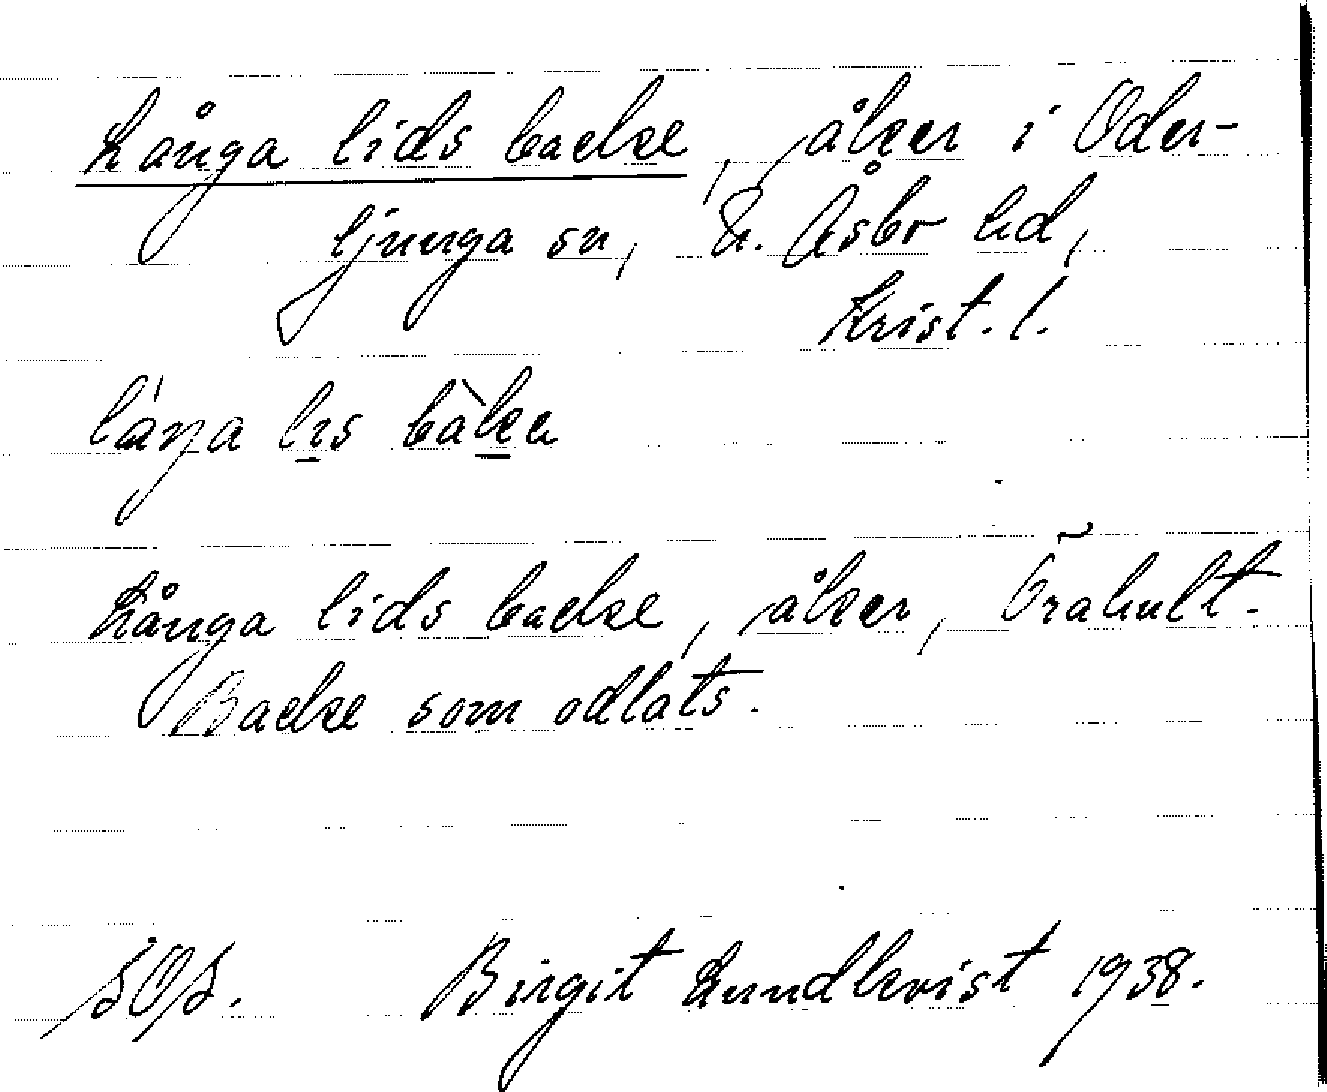 Långa lids backe, åker i Oder-
ljunga sn, N. Åsbo hd,
Krist. l.
Långa lids backe, åker, Örahult.
Backe som odlats.
Birgit Lundkvist 1938.